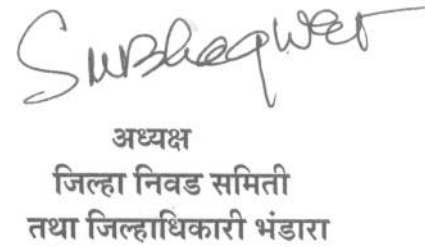 अध्यक्ष
जिल्हा निवड समिती
तथा जिल्हाधिकारी भंडारा